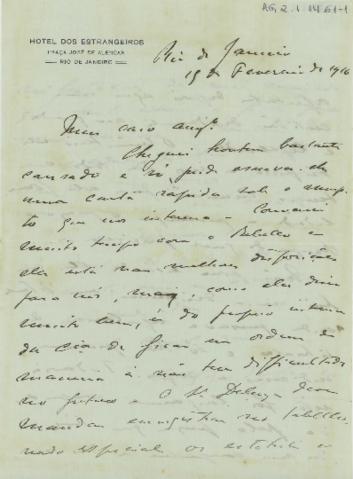 AG 2.1.1461-1
HOTEL DOS ESTRANGEIROS
PRAÇA JOSÉ DE ALENCAR
RIO DE JANEIRO
Rio de Janeiro
15 de Fevereiro de 1916
Meu caro amgº.
Cheguei hontem bastante
cansado e só pude escrever-lhe
uma carta rapida sob o assump-
to que nos interessa - Conversei
muito tempo com o
elle está nas melhores disposições
para nós, mas, como elle disse
muito bem, é do proprio interesse
da Cia. de ficar na ordem de
maneira á não ter difficuldades
no futuro e o Sr. deve
mandar registrar no tabellio-
nado especial os estatutos e